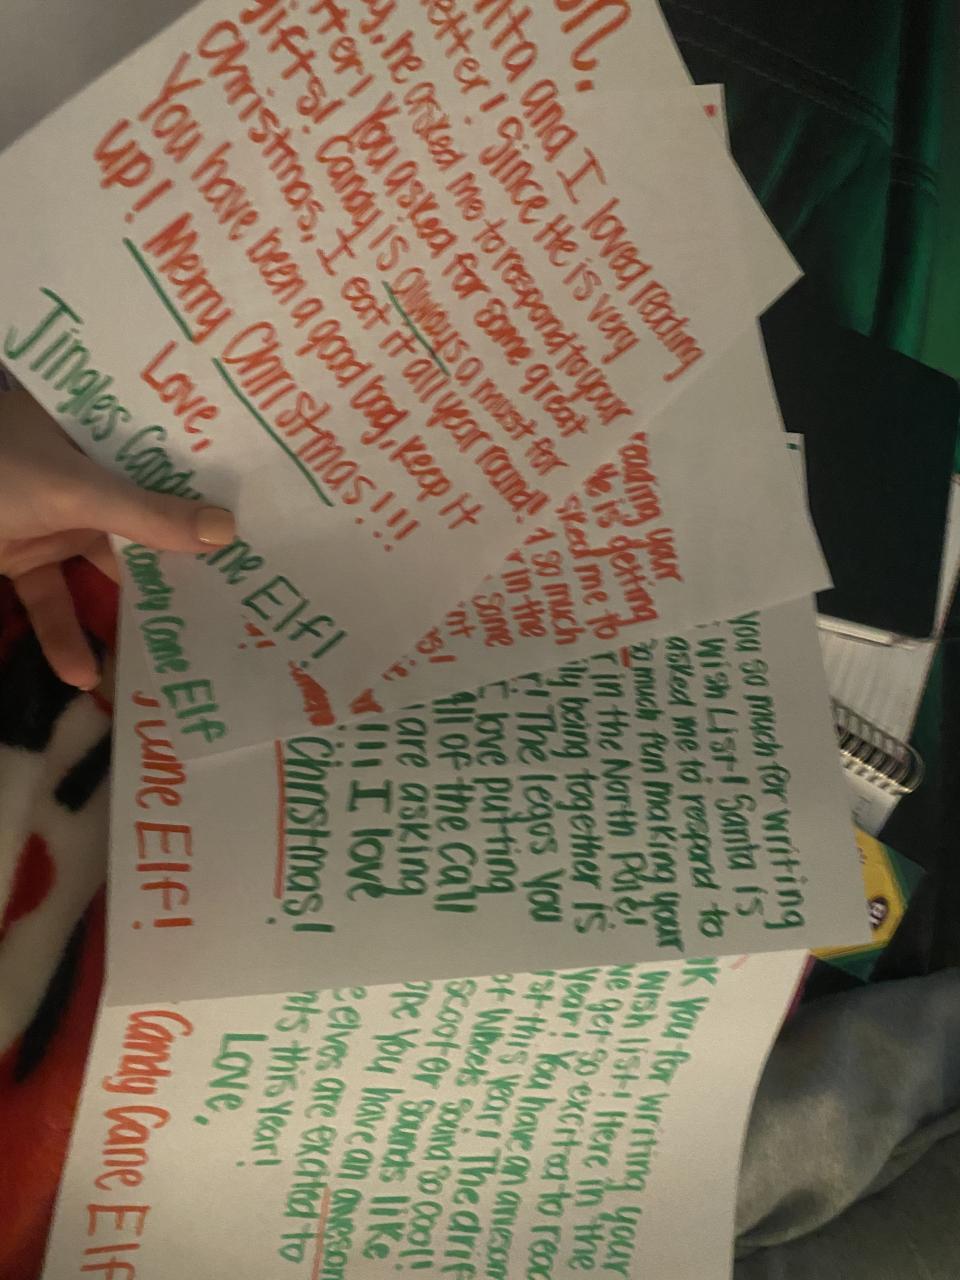 on,
nta and I loved reading
etter! Since He is very
y, he asked me to respond to your
tter! You asked for some great
gifts! Candy is always a must for
Christmas, I eat it all year round!
You have been a good bag, keep it
up! Merry Christmas!!!
Love,
Jingles Candy ne Elf!
eading your
He is getting
sked me to
so much
in the
some
nt
s!
Candy Cane Elf
you so much for writing
Wish List! Santa is
asked me to respond to
so much fun making your
r in the North Pole!
ily being together is
! The legos you
I love putting
All of the Call
are asking
!!! I love
Christmas!
Cane Elf!
nk you for writing your
wish list! Here in the
we get so excited to read
ist this year! You have an awesom
ot wheels sound so cool!
scooter sounds like
ope you have an awesom
e elves are excited to
nts this year!
Love,
Candy Cane Elf